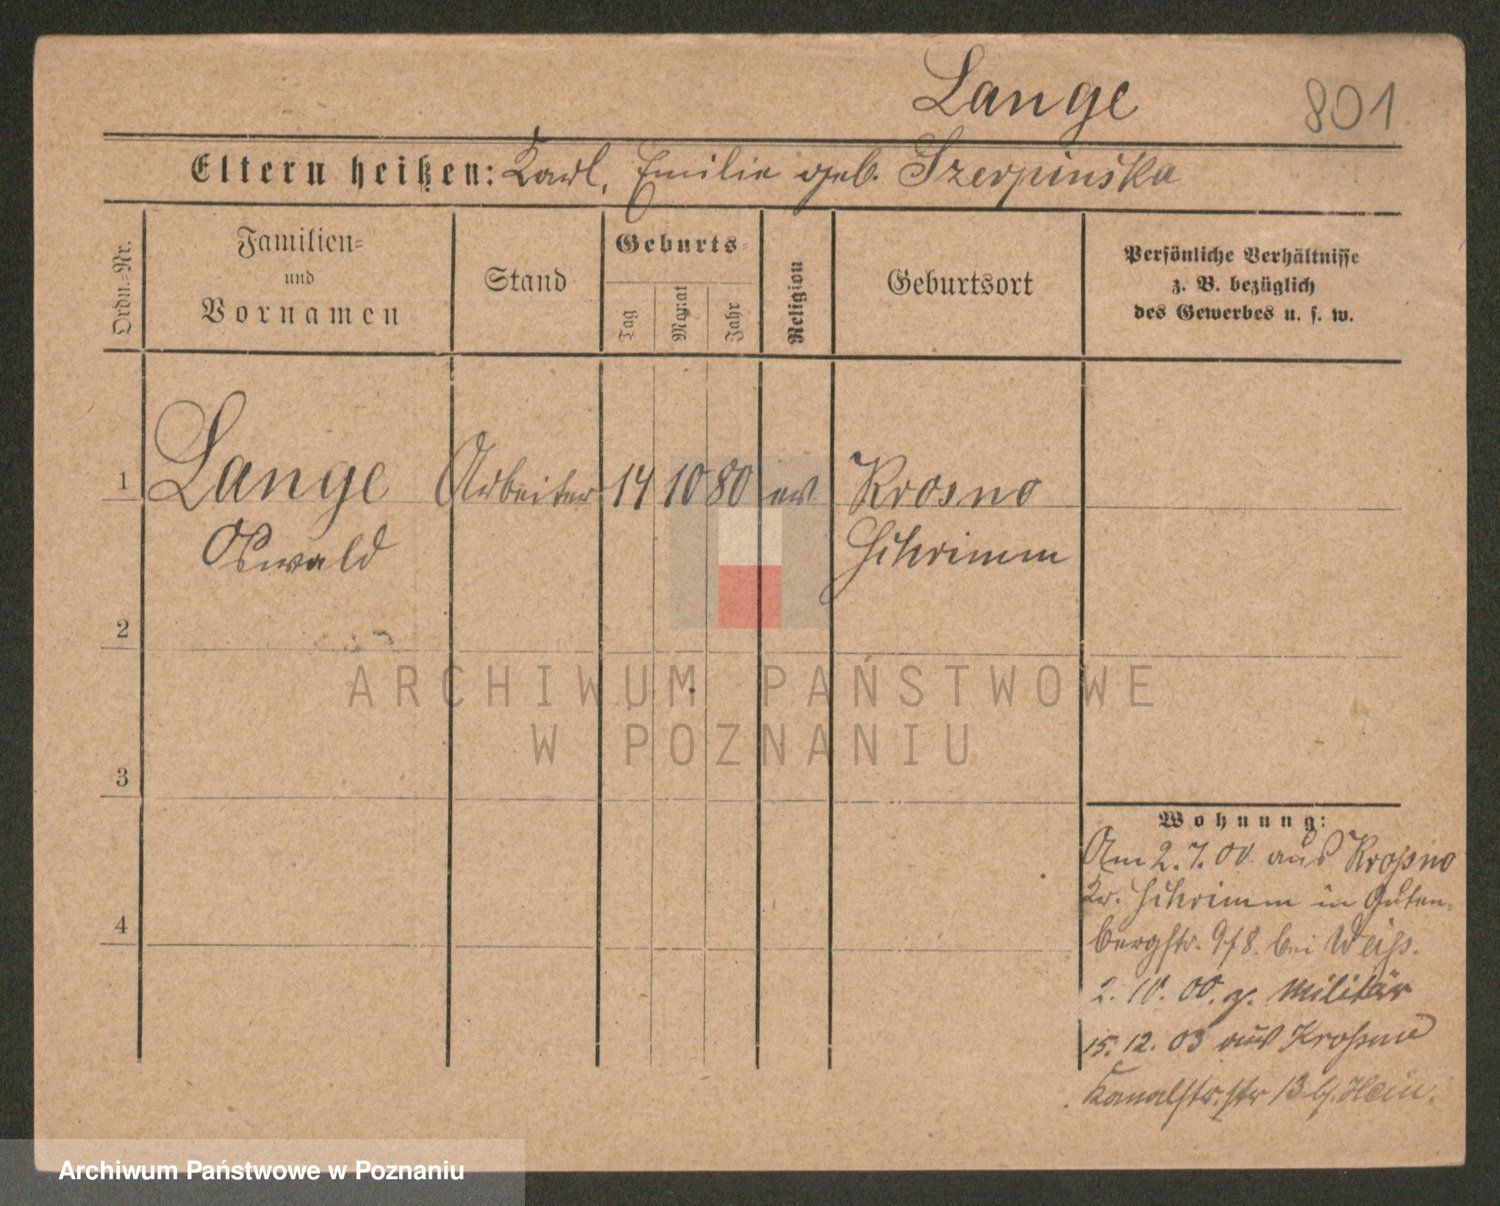 Lange 801
Eltern heißen: Karl, Emilie geb. Szerpinska
Ordn.-Nr.
Familien-
und
Vornamen
Stand
Geburts-
Tag
Monat
Jahr
Religion
Geburtsort
Persönliche Verhältnisse
z. B. bezüglich
des Gewerbes u. s. w.
1 Lange Arbeiter 14 10 80 ev Krosno
Oswald Schrimm
2
ARCHIWUM PAŃSTWOWE
W POZNANIU
3
Wohnung:
Am 2.7.00 aus Krosno
Kr. Schrimm in Guten-
bergstr. bei Weiss.
4
2.10.00. z. Militär
15.12.03 aus Krosno
Kanalstr. 13 b.
Archiwum Państwowe w Poznaniu